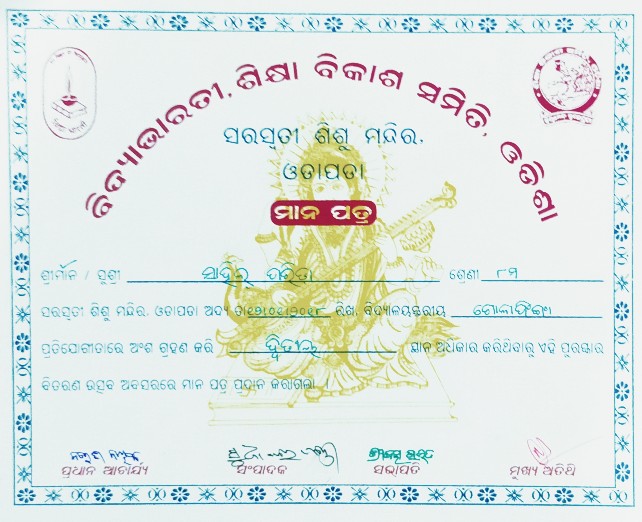 ବିଦ୍ୟାଭାରତୀ, ଶିକ୍ଷା ବିକାଶ ସମିତି, ଓଡ଼ିଶା
ସରସ୍ୱତୀ ଶିଶୁ ମନ୍ଦିର,
ଓତାପତା
ମାନ ପତ୍ର
ଶ୍ରୀମାନ / ସୁଶ୍ରୀ ସାହିଲ୍ ପରିଡା ଶ୍ରେଣୀ ୮ମ
ସରସ୍ୱତୀ ଶିଶୁ ମନ୍ଦିର, ଓତାପତା ଅଦ୍ୟ ତା ରିଖ, ବିଦ୍ୟାଳୟସ୍ତରୀୟ
ପ୍ରତିଯୋଗୀତାରେ ଅଂଶ ଗ୍ରହଣ କରି ଦ୍ୱିତୀୟ ସ୍ଥାନ ଅଧିକାର କରିଥିବାରୁ ଏହି ପୁରସ୍କାର
ବିତରଣ ଉତ୍ସବ ଅବସରରେ ମାନ ପତ୍ର ପ୍ରଦାନ କରାଗଲା ।
ପ୍ରଧାନ ଆଚାର୍ଯ୍ୟ ସଂପାଦକ ସଭାପତି ମୁଖ୍ୟ ଅତିଥି